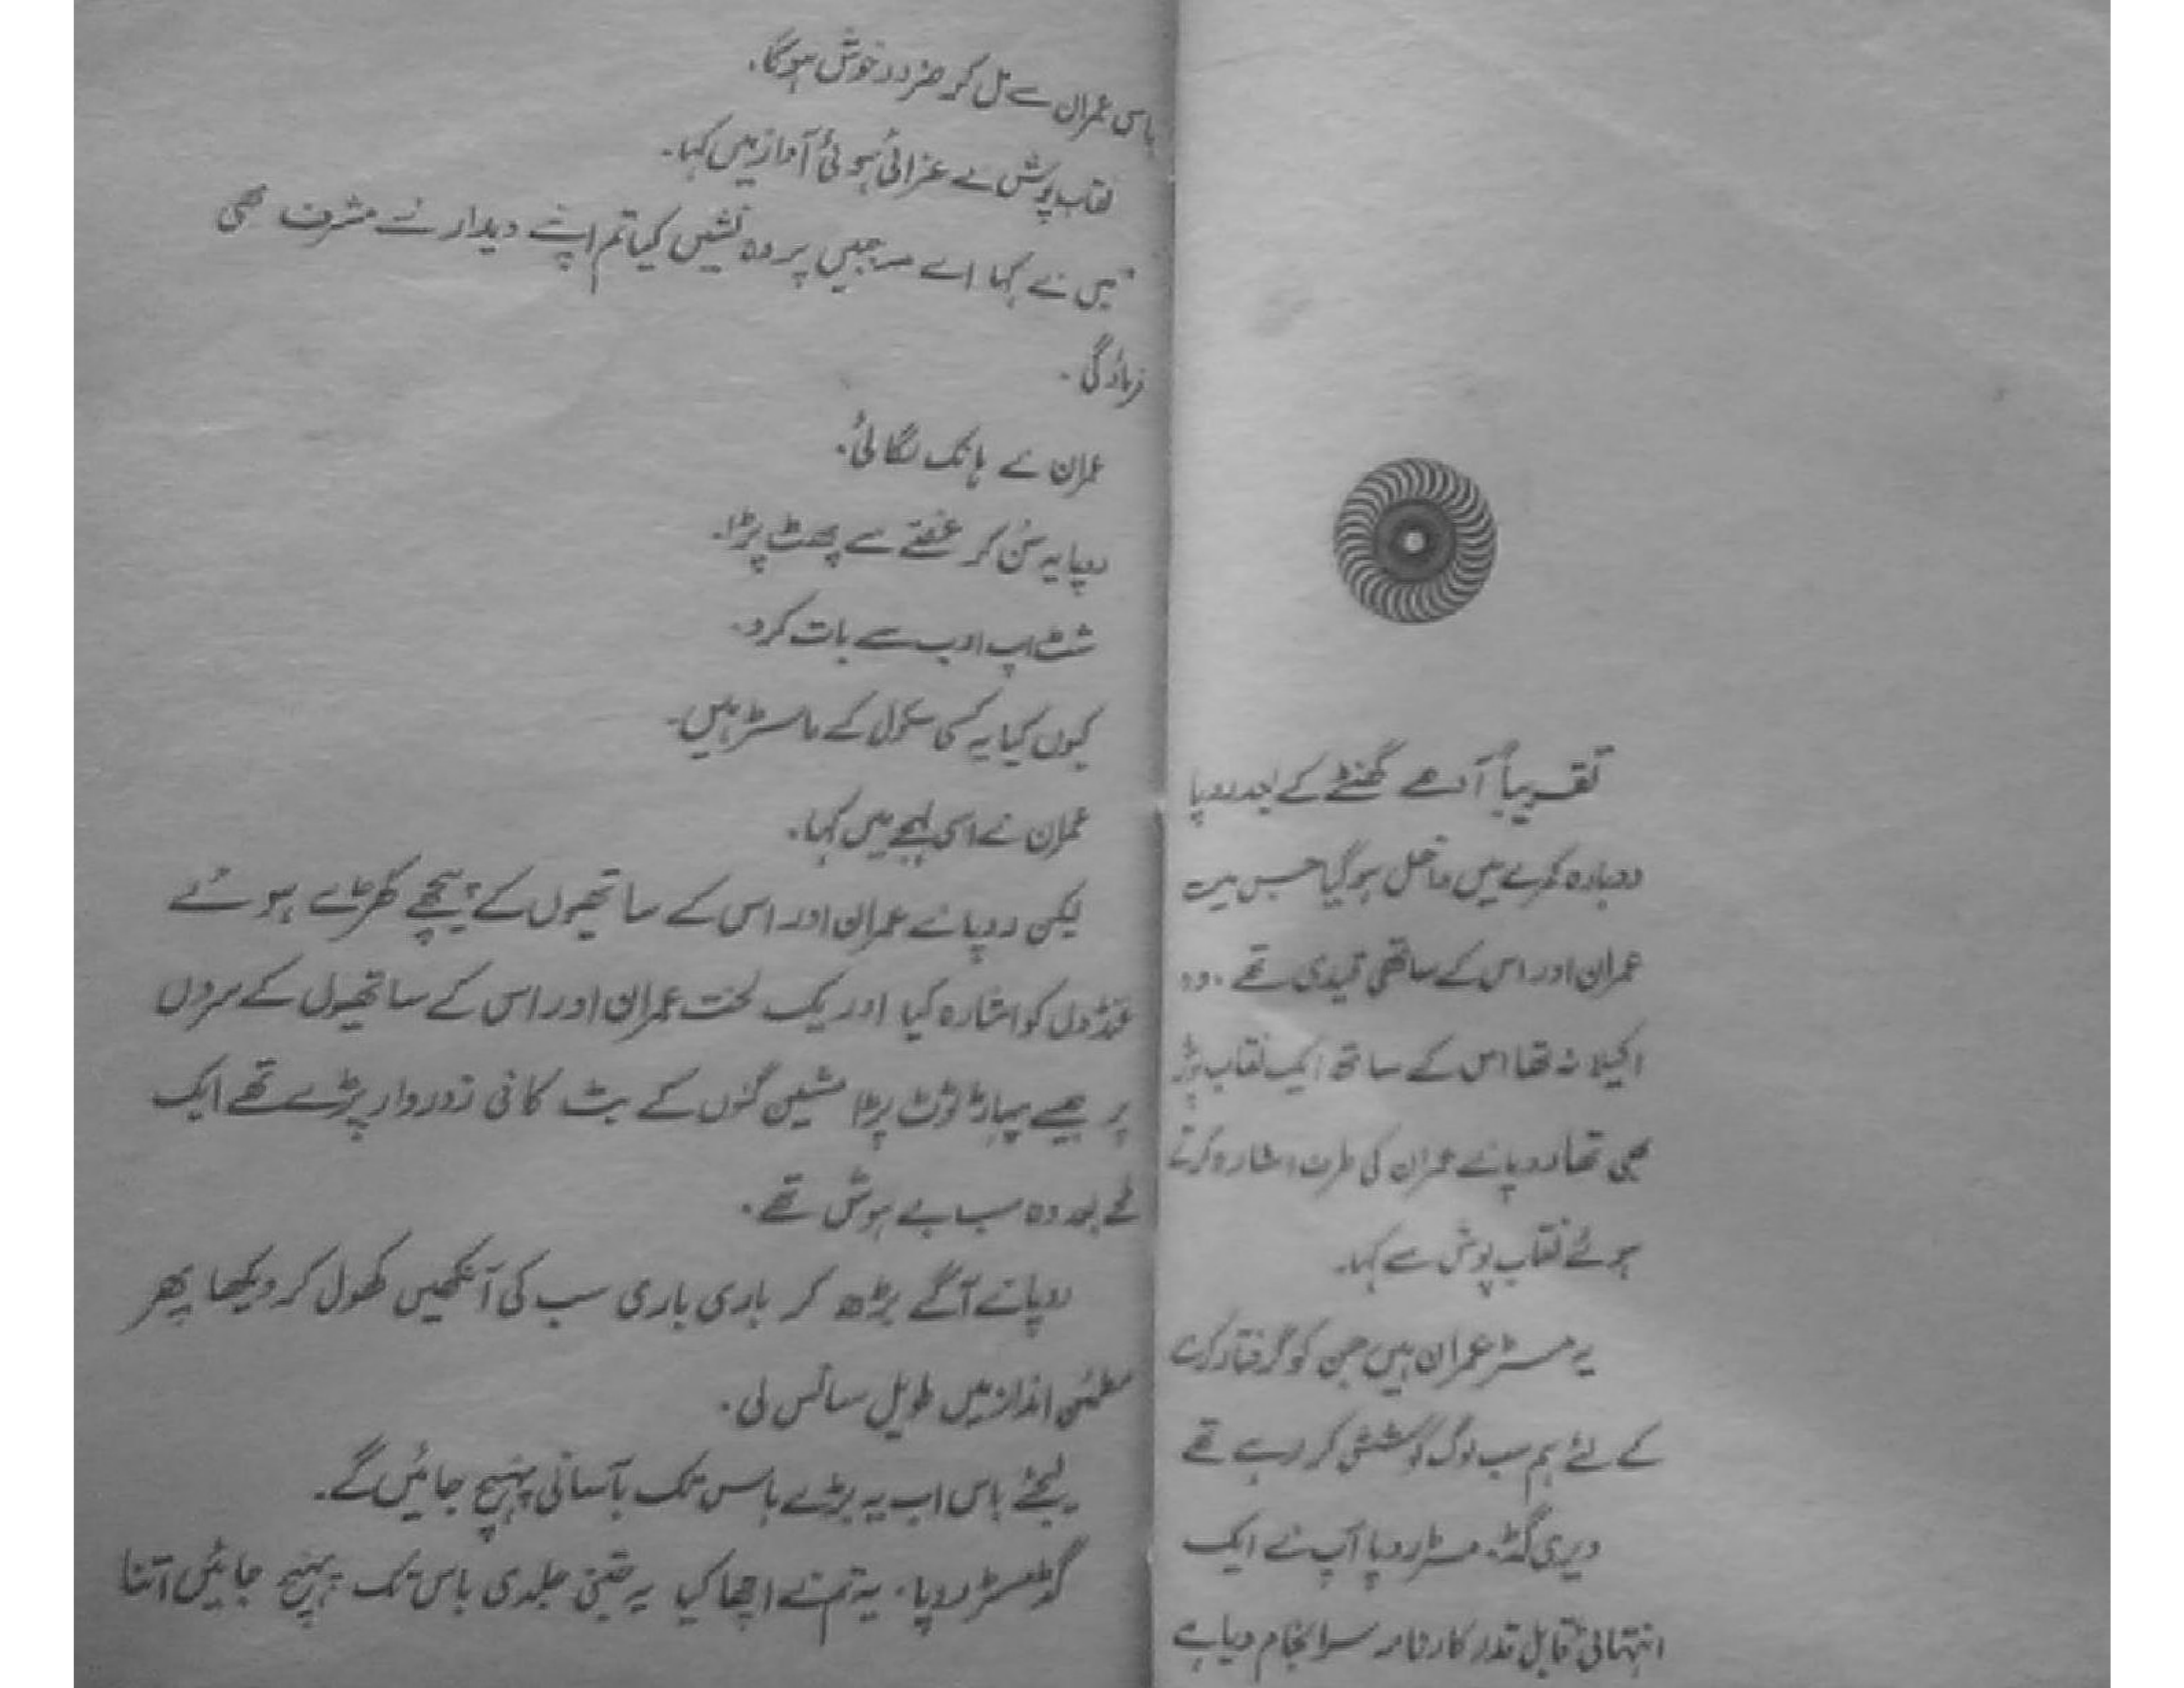 تقریباً آدھے گھنٹے کے بعد روپا
دوبارہ کمرے میں داخل ہو گیا جس میں
عمران اور اس کے ساتھی قیدی تھے۔ وہ
اکیلا نہ تھا اس کے ساتھ ایک نقاب پوش
بھی تھا روپا نے عمران کی طرف اشارہ کرتے
ہوئے نقاب پوش سے کہا۔
یہ مسٹر عمران ہیں جن کو گرفتار کرنے
کے لئے ہم سب لوگ کوشش کر رہے تھے
ویری گڈ۔ مسٹر روپا آپ نے ایک
انتہائی قابل قدر کارنامہ سرانجام دیا ہے
باس عمران سے مل کر ضرور خوش ہو گا۔
نقاب پوش نے غرائی ہوئی آواز میں کہا۔
"میں نے کہا اے مہ جبیں پردہ نشیں کیا تم اپنے دیدار سے مشرف بھی
فرماؤ گی۔
عمران نے ہانک لگائی۔
روپا یہ سُن کر غصّے سے پھٹ پڑا۔
شٹ اپ ادب سے بات کرو۔
کیوں کیا یہ کسی سکول کے ماسٹر ہیں۔
عمران نے اسی لہجے میں کہا۔
لیکن روپا نے عمران اور اس کے ساتھیوں کے پیچھے کھڑے ہوئے
غنڈوں کو اشارہ کیا اور یک لخت عمران اور اس کے ساتھیوں کے سروں
پر جیسے پہاڑ ٹوٹ پڑا مشین گنوں کے بٹ کافی زوردار پڑے تھے ایک
لمحے بعد وہ سب بے ہوش تھے۔
روپا نے آگے بڑھ کر باری باری سب کی آنکھیں کھول کر دیکھا پھر
مطمئن انداز میں طویل سانس لی۔
لیجئے باس اب یہ بڑے باس تک بآسانی پہنچ جائیں گے۔
گڈ مسٹر روپا۔ یہ تم نے اچھا کیا یہ جتنی جلدی باس تک پہنچ جائیں اتنا